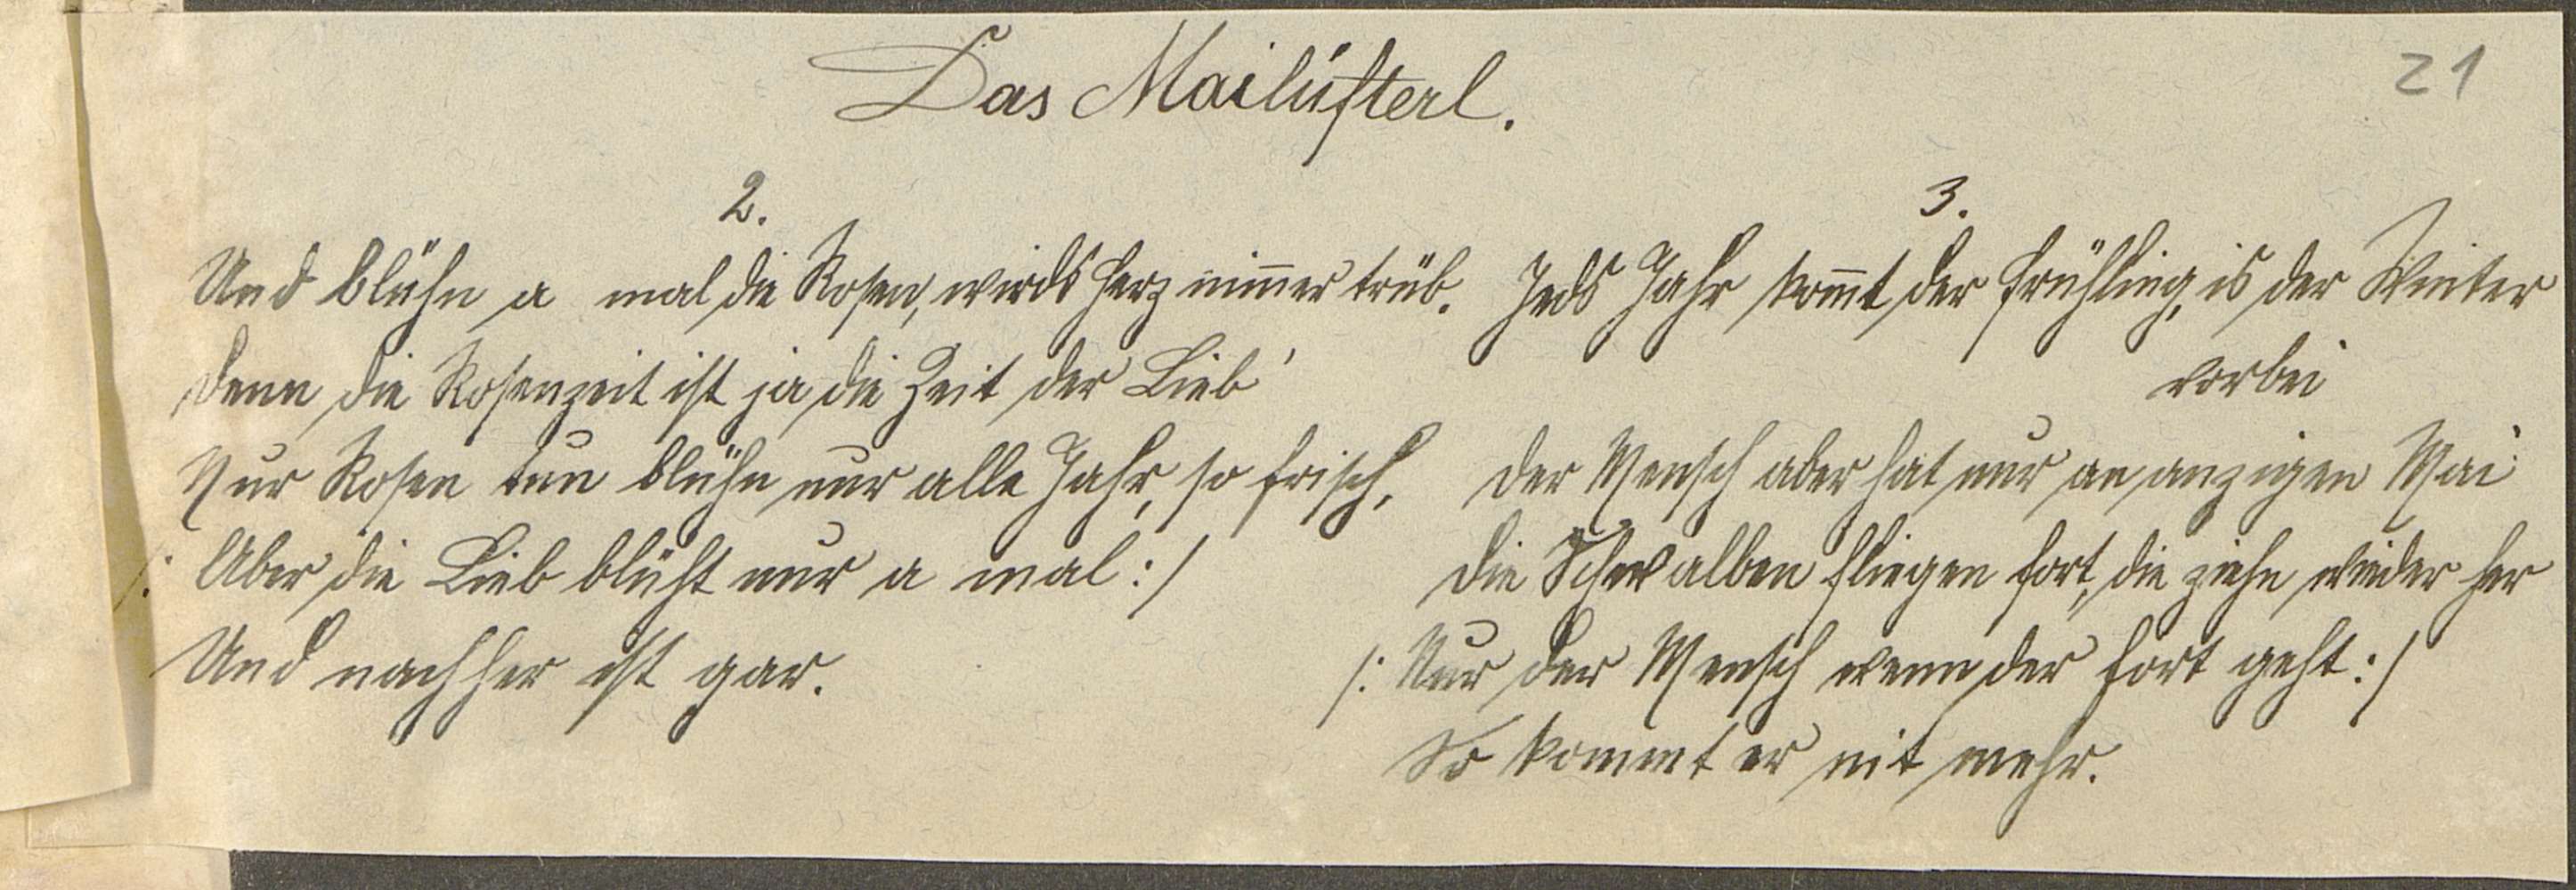 Das Mailüfterl.
21
2.
Und blühn a mal die Rosen, wirds Herz nim̅er trüb.
Denn die Rosenzeit ist ja die Zeit der Lieb'
Nur Rosen tun blühn nur alle Jahr, so frisch,
/: Aber die Lieb blüht nur a mal :/
Und nachher ist gar.
3.
Jeds Jahr kom̅t der Frühling, is der Winter
vorbei
Der Mensch aber hat nur an anzigen Mai
Die Schwalben fliegen fort, die ziehn wieder her
/: Nur der Mensch wenn der fort geht :/
So kommt er nit mehr.